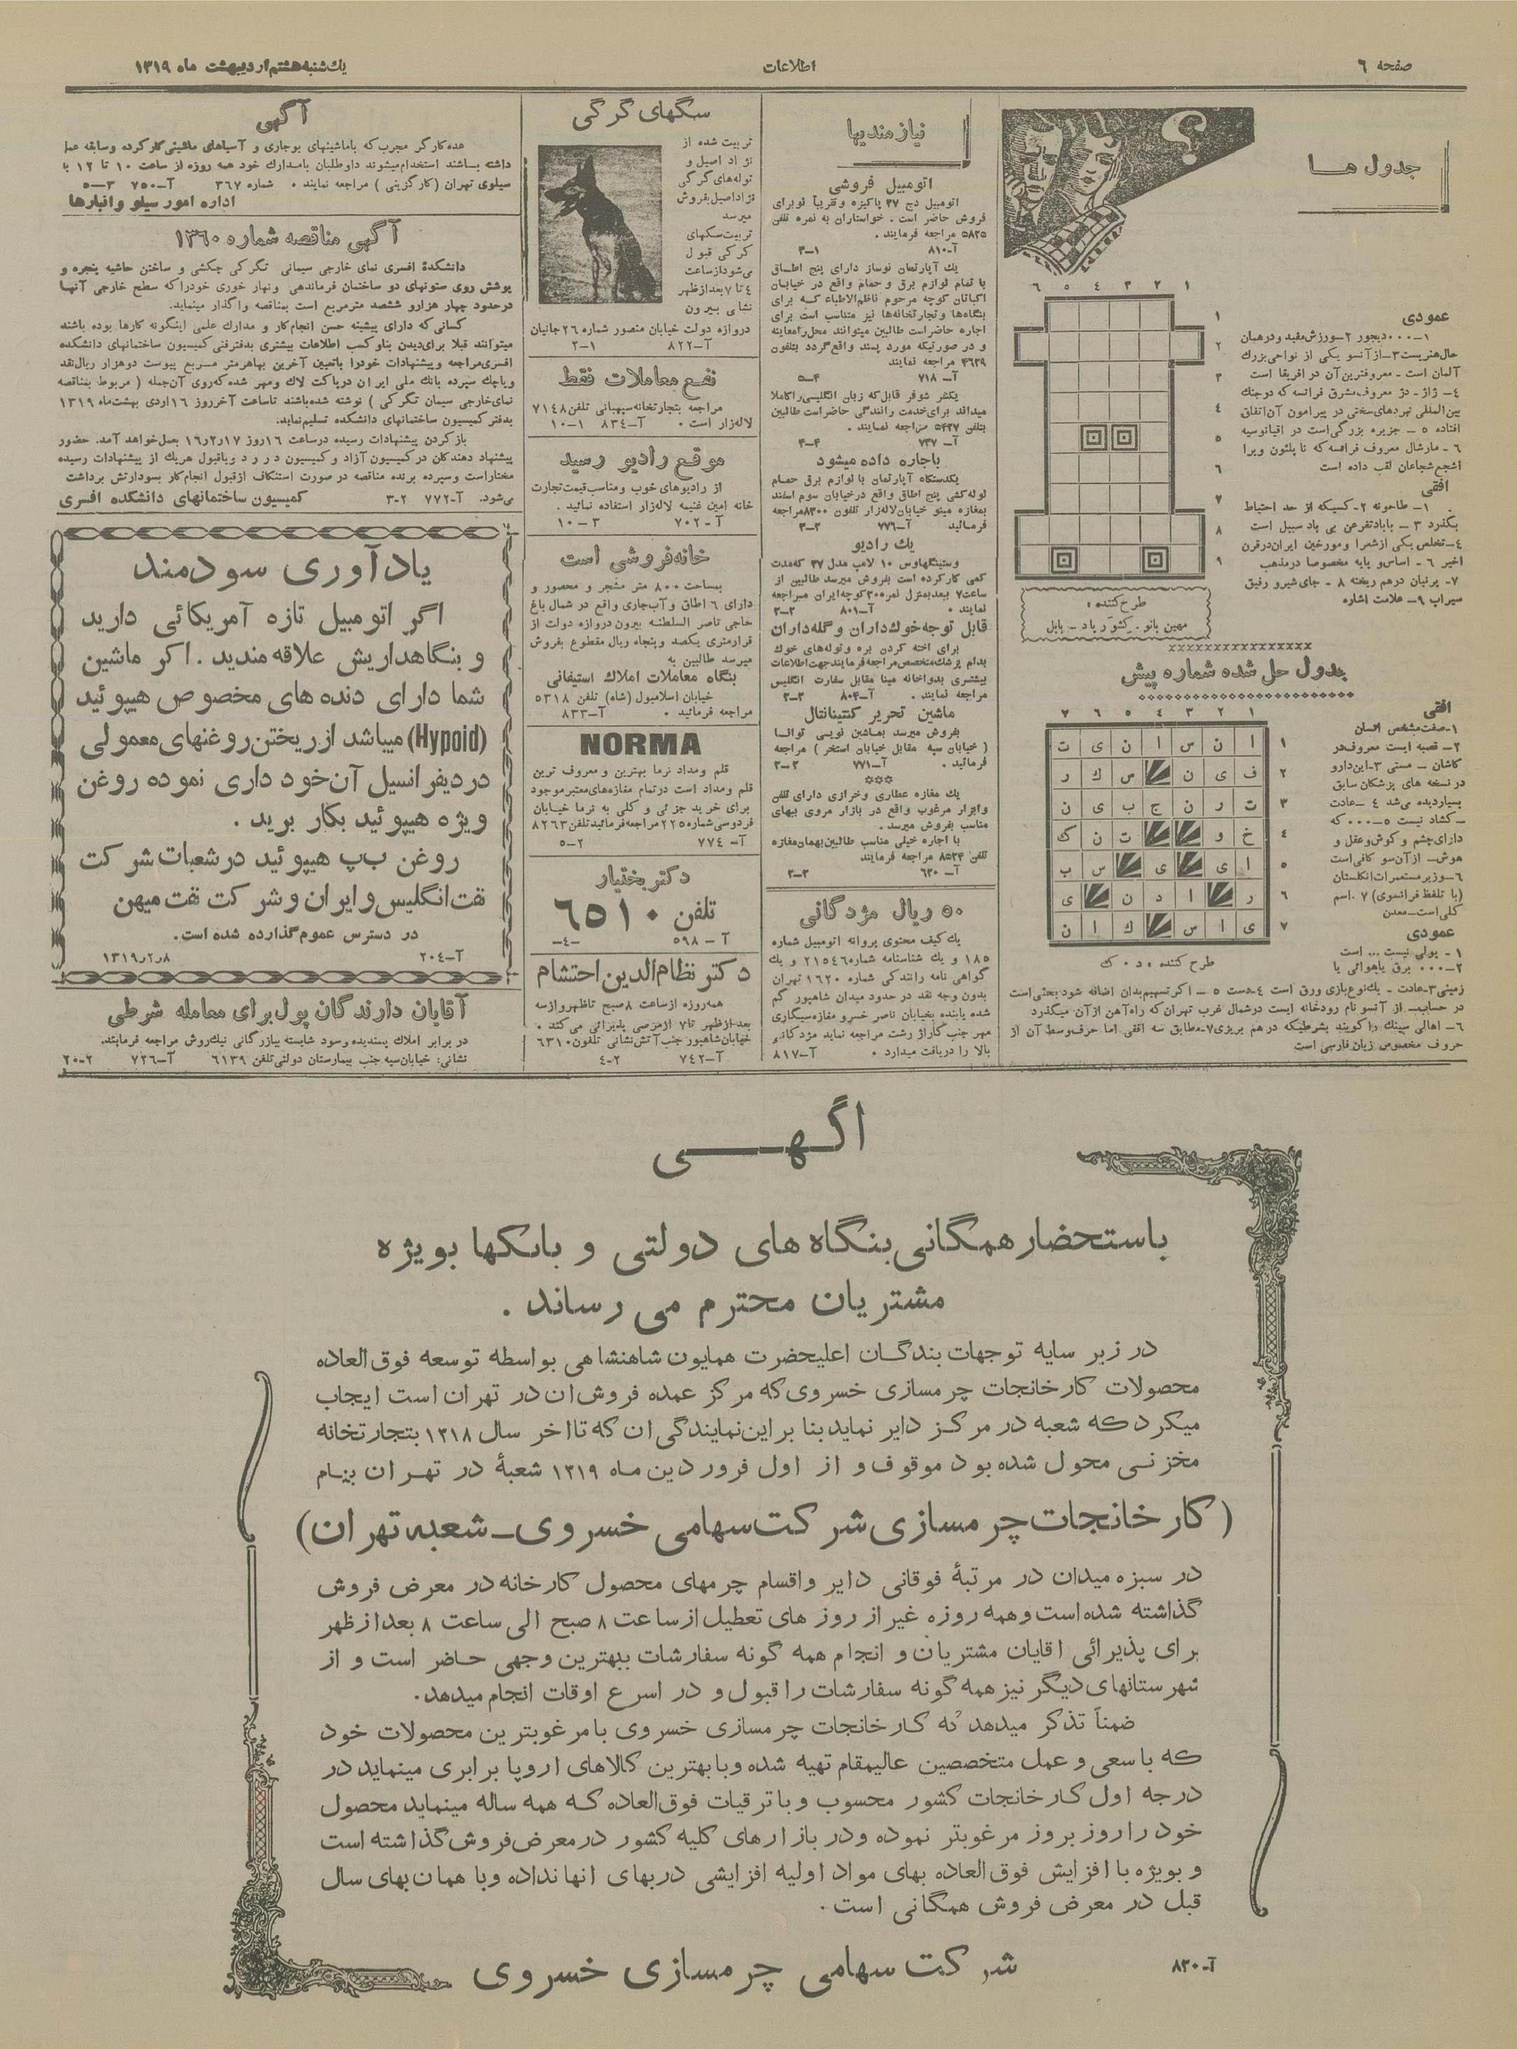 صفحه ٦
اطلاعات
یك‌شنبه هشتم اردیبهشت ماه ١٣١٩
جدول ها
١ ٢ ٣ ٤ ٥ ٦
١
٢
٣
٤
٥
٦
٧
٨
٩
عمودی
١-٠٠٠دیجور ٢-ورزش مفید ودرهمان
حال هنریست ٣-ازآنسو یکی از نواحی بزرك
آلمان است - معروفترین آن در افریقا است
٤- ژاژ - دژ معروف مشرق فرانسه که دوجنك
بین‌المللی نبردهای سختی در پیرامون آن اتفاق
افتاده ٥ - جزیره بزرگی است در اقیانوسیه
٦ - مارشال معروف فرانسه که ناپلئون ویرا
اشجع شجاعان لقب داده است
افقی
١- طاحونه ٢-کسیکه از حد احتیاط
بگذرد ٣ - باباد تفرعن بی یاد سبیل است
٤-تخلص یکی ازشعرا و مورخین ایران درقرن
اخیر ٦ - اساس و پایه مخصوصا درمذهب
٧- پرنیان درهم ریخته ٨ - جای شیر و رفیق
سیراب ٩- علامت اشاره
طرح کننده :
مهین بانو . کشور یاد - بابل
جدول حل شده شماره پیش
١ ٢ ٣ ٤ ٥ ٦ ٧
١ ا ن س ا ن ی ت
٢ ف ی ن س ك ر
٣ ت ر ن ج ب ی ن
٤ خ و ت ن ك
٥ ا ی ی س ب
٦ ر ا د ن ی
٧ ی ا س ك ا ن
طرح کننده : د . ك
افقی
١-صفت مشخص انسان
٢- قصبه ایست معروف در
کاشان - مستی ٣-این دارو
در نسخه های پزشکان سابق
بسیار دیده می شد ٤ -عادت
- کشاد نیست ٥-٠٠٠ که
دارای چشم و گوش و عقل و
هوش- از آن سو کافی است
٦-وزیر مستعمرات انگلستان
(با تلفظ فرانسوی) ٧ . اسم
کلی است- معدن
عمودی
١ - پولی نیست... است
٢-٠٠٠ برق یاهوائی یا
زمینی ٣-عادت - یك‌نوع بازی ورق است ٤-دست ٥ - اکر تسهیم بدان اضافه شود بحثی است
در حساب- از آنسو نام رودخانه ایست در شمال غرب تهران که راه آهن از آن میگذرد
٦- اهالی سپتك را گویند بشرطیکه در هم بریزی ٧-مطابق سه افقی اما حرف وسط آن از
حروف مخصوص زبان فارسی است
نیازمندیها
اتومبیل فروشی
اتومبیل دج ٣٧ پاکیزه و تقریباً نو برای
فروش حاضر است . خواستاران به نمره تلفن
٥٨٢٥ مراجعه فرمایند .
آ-٨١٠ ٣-١
یك آپارتمان نوساز دارای پنج اطاق
با تمام لوازم برق و حمام واقع در خیابان
اکباتان کوچه مرحوم ناظم‌الاطباء کـه برای
بنگاه‌ها و تجارتخانه‌ها نیز متناسب است برای
اجاره حاضر است طالبین میتوانند محل را معاینه
و در صورتیکه مورد پسند واقع گردد بتلفون
٤٦٣٩ مراجعه نمایند
آ- ٧١٨ ٥-٤
یکنفر شوفر قابل که زبان انگلیسی را کاملا
میداند برای خدمت رانندگی حاضر است طالبین
بتلفن ٥٤٢٧ مراجعه نمایند .
آ- ٧٣٧ ٤-٤
باجاره داده میشود
یکدستگاه آپارتمان با لوازم برق حمام
لوله‌کشی پنج اطاق واقع در خیابان سوم اسفند
بمغازه مینو خیابان لاله‌زار تلفون ٨٣٠٠ مراجعه
فرمائید آ-٧٧٦ ٣-٣
یك رادیو
وستینگهاوس ١٠ لامپ مدل ٣٧ که مدت
کمی کار کرده است بفروش میرسد طالبین از
ساعت ٧ بعد بمنزل نمره ٣٠٠ کوچه ایران مراجعه
نمایند . آ-٨٠١ ٣-٢
قابل توجه خوك داران و گله داران
برای اخته کردن بره و توله‌های خوك
بدام پزشك متخصص مراجعه فرمایند جهت اطلاعات
بیشتری بدواخانه مینا مقابل سفارت انگلیس
مراجعه نمایند . آ-٨٠٤ ٣-٢
ماشین تحریر کنتیننتال
بفروش میرسد بماشین نویسی توانا
( خیابان سپه مقابل خیابان استخر ) مراجعه
فرمائید . آ-٧٧١ ٣-٣
***
یك مغازه عطاری و خرازی دارای تلفن
و ابزار مرغوب واقع در بازار مروی ببهای
مناسب بفروش میرسد .
با اجاره خیلی مناسب طالبین بهمان مغازه
تلفن ٨٥٢٤ مراجعه فرمایند
آ- ٦٢٠ ٣-٣
٥٠ ریال مژدگانی
یك کیف محتوی پروانه اتومبیل شماره
١٨٥ و یك شناسنامه شماره ٢١٥٤٦ و یك
گواهی نامه رانندگی شماره ١٦٢٠ تهران
بدون وجه نقد در حدود میدان شاهپور گم
شده یابنده بخیابان ناصر خسرو مغازه سیگاری
مهر جنب گاراژ رشت مراجعه نماید مژدگانی
بالا را دریافت میدارد . آ-٨١٧
سگهای گرگی
تربیت شده از
نژاد اصیل و
توله‌های گرگی
نژاد اصیل بفروش
میرسد
تربیت سگهای
گرگی قبول
می‌شود از ساعت
٤ تا ٧ بعدازظهر
نشانی بیرون
دروازه دولت خیابان منصور شماره ٢٦ جانیان
آ-٨٢٢ ٢-١
نفع معاملات فقط
مراجعه بتجارتخانه سپهبانی تلفن ٧١٤٨
لاله‌زار است . آ-٨٣٤ ١-١٠
موقع رادیو رسید
از رادیوهای خوب و مناسب قیمت تجارت
خانه امین غنیمه لاله‌زار استفاده نمائید .
آ-٧٠٢ ٣-١٠
خانه فروشی است
بمساحت ٨٠٠ متر مشجر و محصور و
دارای ٦ اطاق و آب جاری واقع در شمال باغ
حاجی ناصر السلطنه بیرون دروازه دولت از
قرار متری یکصد و پنجاه ریال مقطوع بفروش
میرسد طالبین به
بنگاه معاملات املاك استیفانی
خیابان اسلامبول (شاه) تلفن ٥٣١٨
مراجعه فرمائید . آ-٨٣٣
NORMA
قلم ومداد نرما بهترین و معروف ترین
قلم ومداد است در تمام مغازه‌های معتبر موجود
برای خرید جزئی و کلی به نرما خیابان
فردوسی شماره ٢٢٥ مراجعه فرمائید تلفن ٨٢٦٣
آ- ٧٧٤ ٥-٢
دکتر بختیار
تلفن ٦٥١٠
آ - ٥٩٨ -٤-
دکتر نظام الدین احتشام
همه روزه از ساعت ٨ صبح تا ظهر و از سه
بعدازظهر تا ٧ از مرضی پذیرائی می کند .
خیابان شاهپور جنب آتش نشانی تلفون ٦٣١٠
آ-٧٤٢ ٤-٢
آگهی
عده کارگر مجرب که با ماشینهای بوجاری و آسیاهای ماشینی کار کرده و سابقه عمل
داشته باشند استخدام میشوند داوطلبان با مدارك خود همه روزه از ساعت ١٠ تا ١٢ با
سیلوی تهران (کارگزینی ) مراجعه نمایند . شماره ٣٦٧ آ-٧٥٠ ٣-٥
اداره امور سیلو وانبارها
آگهی مناقصه شماره ١٣٦٠
دانشکدهٔ افسری نمای خارجی سیمانی تگرکی چکشی و ساختن حاشیه پنجره و
پوشش روی ستونهای دو ساختمان فرماندهی ونهار خوری خود را که سطح خارجی آنها
درحدود چهار هزار و ششصد مترمربع است بمناقصه واگذار مینماید.
کسانی که دارای پیشینه حسن انجام کار و مدارك علمی اینگونه کارها بوده باشند
میتوانند قبلا برای دیدن بنا و کسب اطلاعات بیشتری بدفتر فنی کمیسیون ساختمانهای دانشکده
افسری مراجعه و پیشنهادات خود را با تعیین آخرین بها هر متر مربع پیوست دوهزار ریال نقد
ویاچك سپرده بانك ملی ایران درپاکت لاك ومهر شده که روی آن جمله ( مربوط بمناقصه
نمای خارجی سیمان تگرکی ) نوشته شده باشند تا ساعت آخر روز ١٦ اردی بهشت ماه ١٣١٩
بدفتر کمیسیون ساختمانهای دانشکده تسلیم نماید.
باز کردن پیشنهادات رسیده درساعت ١٦ روز ١٧ر٢ر١٩ بعمل خواهد آمد. حضور
پیشنهاد دهندگان در کمیسیون آزاد و کمیسیون در رد ویا قبول هریك از پیشنهادات رسیده
مختار است و سپرده برنده مناقصه در صورت استنکاف از قبول انجام کار بسود ارتش برداشت
می‌شود. آ-٧٧٢ ٣-٢ کمیسیون ساختمانهای دانشکده افسری
یادآوری سودمند
اگر اتومبیل تازه آمریکائی دارید
و بنگاهداریش علاقه مندید . اکر ماشین
شما دارای دنده های مخصوص هیپوئید
(Hypoid) میباشد از ریختن روغنهای معمولی
در دیفرانسیل آن خود داری نموده روغن
ویژه هیپوئید بکار برید .
روغن ب‌پ هیپوئید در شعبات شرکت
نفت انگلیس و ایران و شرکت نفت میهن
در دسترس عموم گذارده شده است.
آ-٢٠٤ ٨ر٢ر١٣١٩
آقایان دارندگان پول برای معامله شرطی
در برابر املاك پسندیده وسود شایسته ببازرگانی نیك‌روش مراجعه فرمایند.
نشانی: خیابان سپه جنب بیمارستان دولتی تلفن ٦١٣٩ آ-٧٢٦ ٢-٢٠
اگهی
باستحضار همگانی بنگاه های دولتی و بانکها بویژه
مشتریان محترم می رساند .
در زیر سایه توجهات بندگان اعلیحضرت همایون شاهنشاهی بواسطه توسعه فوق العاده
محصولات کارخانجات چرمسازی خسروی که مرکز عمده فروش ان در تهران است ایجاب
میکرد که شعبه در مرکز دایر نماید بنا بر این نمایندگی ان که تا اخر سال ١٣١٨ بتجارتخانه
مخزنی محول شده بود موقوف و از اول فروردین ماه ١٣١٩ شعبهٔ در تهران بنام
( کارخانجات چرمسازی شرکت سهامی خسروی - شعبه تهران)
در سبزه میدان در مرتبهٔ فوقانی دایر و اقسام چرمهای محصول کارخانه در معرض فروش
گذاشته شده است و همه روزه غیر از روز های تعطیل از ساعت ٨ صبح الی ساعت ٨ بعد از ظهر
برای پذیرائی اقایان مشتریان و انجام همه گونه سفارشات ببهترین وجهی حاضر است و از
شهرستانهای دیگر نیز همه گونه سفارشات را قبول و در اسرع اوقات انجام میدهد.
ضمناً تذکر میدهد که کارخانجات چرمسازی خسروی با مرغوبترین محصولات خود
که با سعی و عمل متخصصین عالیمقام تهیه شده و با بهترین کالاهای اروپا برابری مینماید در
درجه اول کارخانجات کشور محسوب و با ترقیات فوق العاده که همه ساله مینماید محصول
خود را روز بروز مرغوبتر نموده و در بازارهای کلیه کشور در معرض فروش گذاشته است
و بویژه با افزایش فوق العاده بهای مواد اولیه افزایشی در بهای انها نداده و با همان بهای سال
قبل در معرض فروش همگانی است .
آ-٨٣٠ شرکت سهامی چرمسازی خسروی